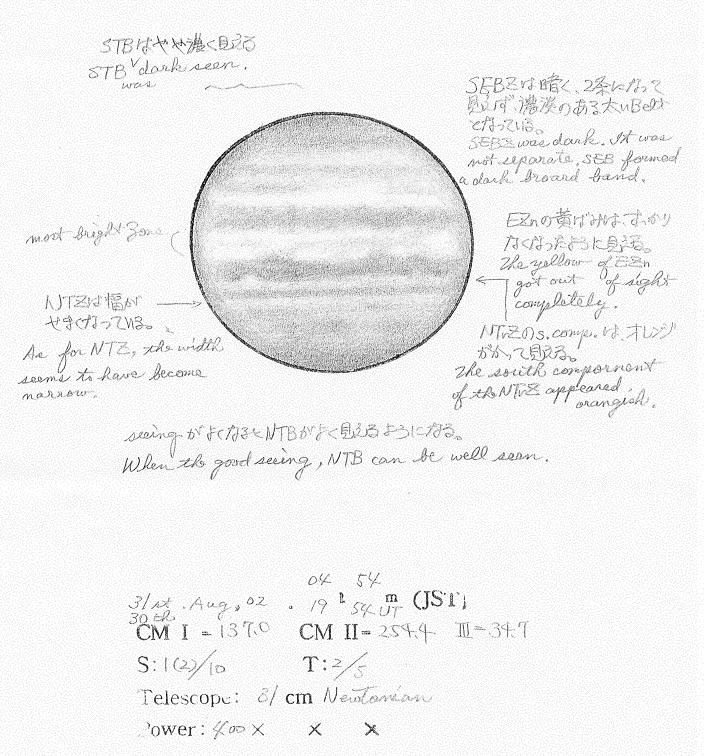 STBはやや濃く見える
STB was dark seen.
SEBZは暗く、2条になって
見えず、濃淡のある太いBelt
となっている。
SEBZ was dark. It was
not separate, SEB formed
a dark broard band.
most bright zone
EZnの黄ばみは、すっかり
なくなったように見える。
The yellow of EZn
got out of sight
completely.
NTZは幅が
せまくなっている。
As for NTZ, the width
seems to have become
narrow.
NTrZのs.comp.は、オレンジ
がかって見える。
The south compornent
of the NTrZ appeared
orangish.
seeingがよくなるとNTBがよく見えるようになる。
When the good seeing, NTB can be well seen.
04 54
31st. Aug, 02 . 19 h 54 m (JST)
30th UT
CM I = 137.0 CM II = 254.4 III = 34.7
S: 1(2)/10 T: 2/5
Telescope: 31 cm Newtonian
Power: 400 × × ×